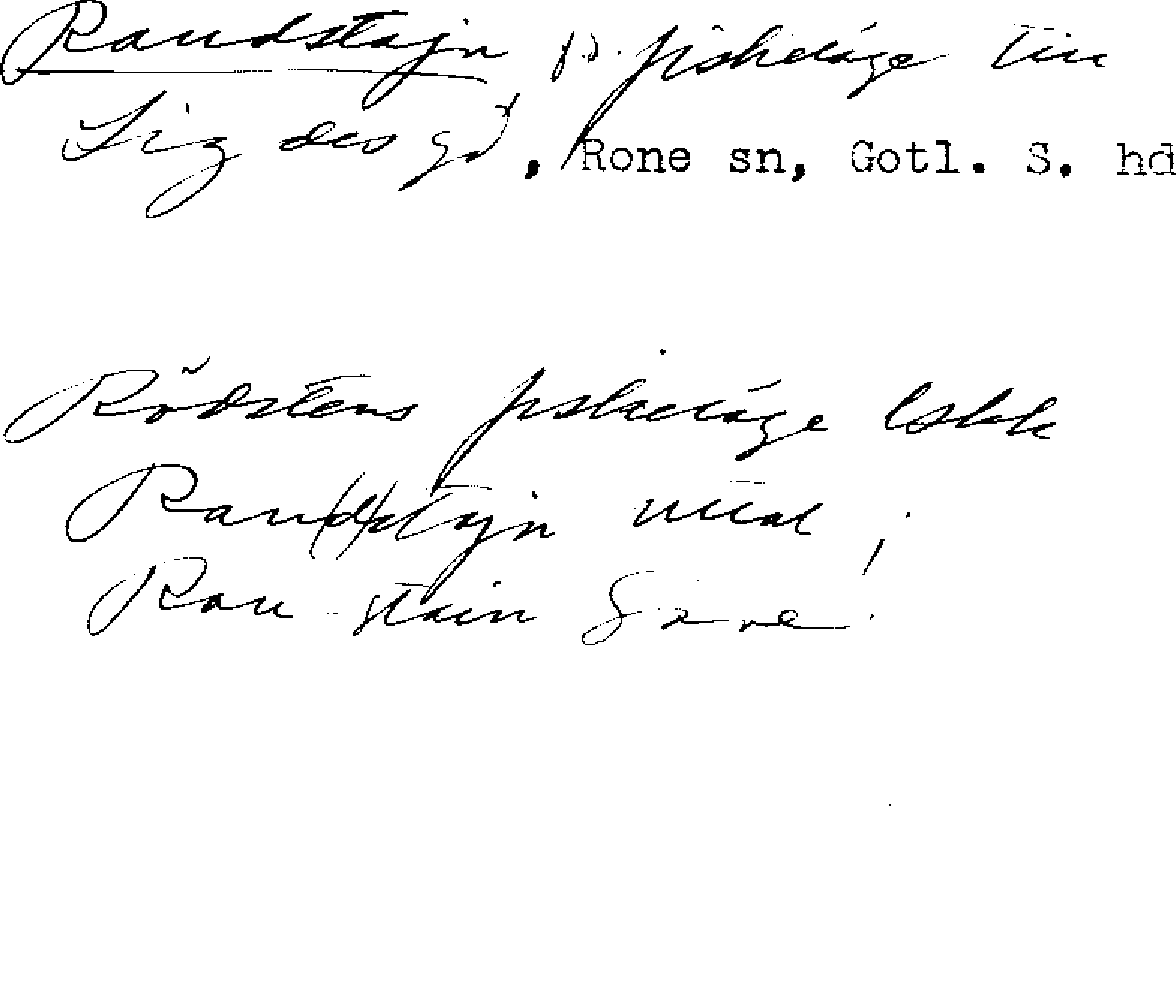 Raudstajn p. fiskeläge till
Ligdes gd, Rone sn, Gotl. S. hd
Rödstens fiskeläge lskk
Rau(d)stajn uttal;
Rau-stain Säve.